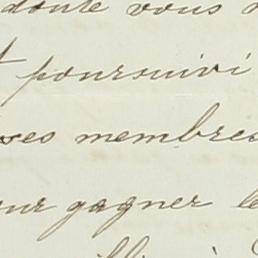 doute vous
poursuivi
ses membres
our gagner le